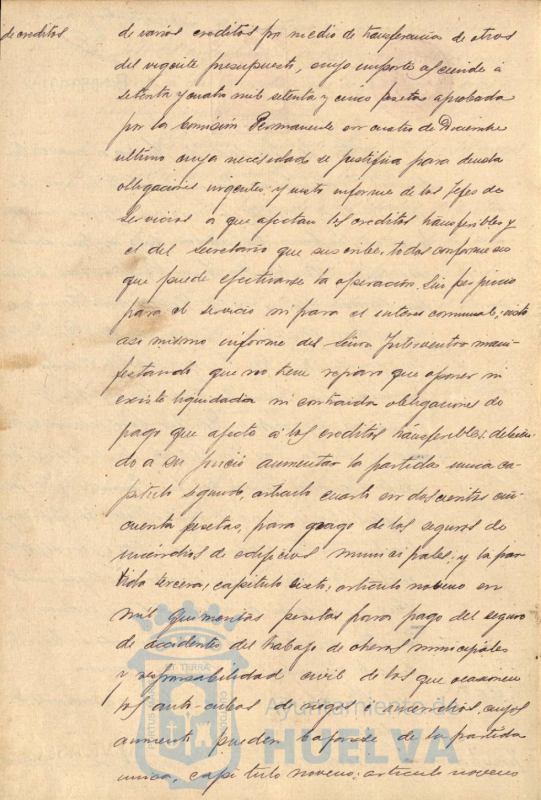 de creditos
de varios creditos por medio de transferencias de otros
del vigente presupuesto, cuyo importe asciende á
setenta y cuatro mil setenta y cinco pesetas aprobada
por la Comisión Permanente en cuatro de Diciembre
ultimo cuya necesidad se justifica para
obligaciones urgentes y visto informe de los Jefes de
Servicios a que afectan los creditos transferibles y
el del Secretario que suscribe, todos conformes en
que puede efectuarse la operación. Sin perjuicio
para el servicio ni para el interes comunal; visto
asi mismo informe del Señor Interventor mani-
festando que no tiene reparo que oponer ni
existe liquidada ni contraida obligaciones de
pago que afecte á los creditos transferibles; debien-
do á su juicio aumentar la partida unica ca-
pitulo segundo, articulo cuarto en doscientas cin-
cuenta pesetas, para pago de los seguros de
incendios de edificios municipales; y la par-
tida tercera, capitulo sexto, articulo noveno en
mil quinientas pesetas para pago del seguro
de accidentes del trabajo de obreros municipales
y responsabilidad civil de los que ocasionen
los auto-cubas de riegos e incendios, cuyos
aumentos pueden bajarse de la partida
unica, capitulo noveno; articulo noveno
Ayuntamiento de
HUELVA